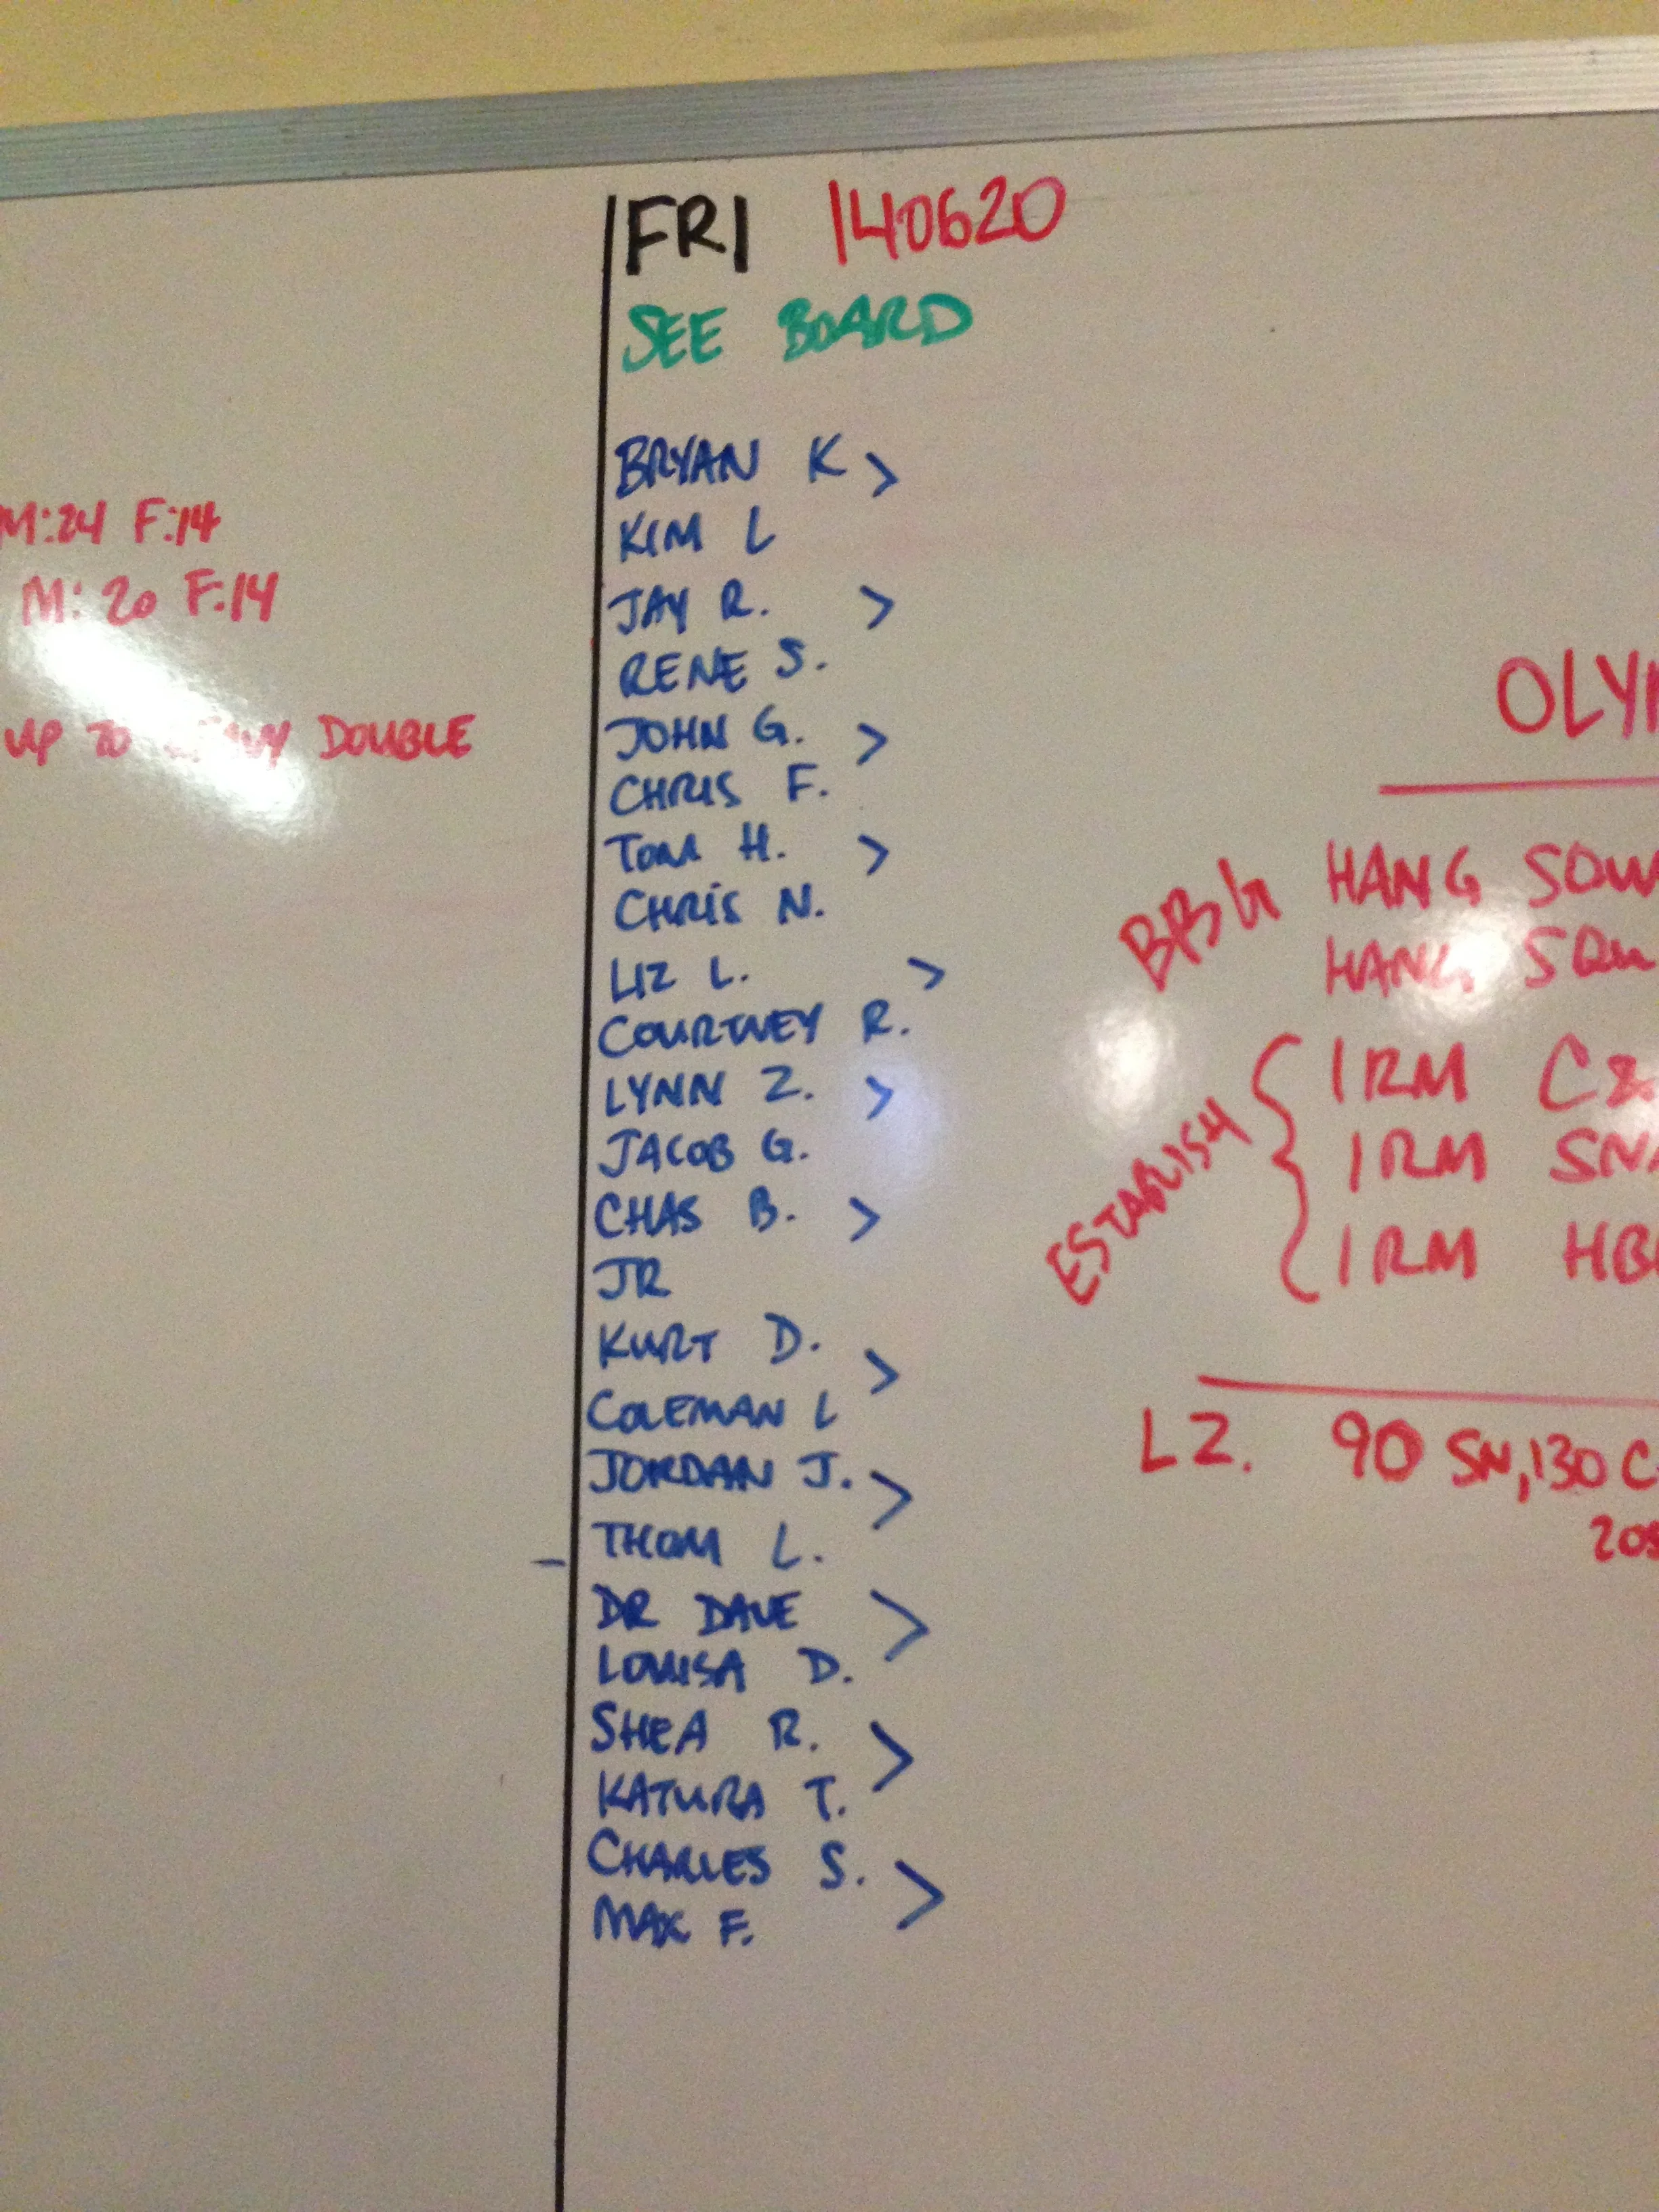 FRI 140620
SEE BOARD
M:24 F:14
M: 20 F:14
UP TO HEAVY DOUBLE
BRYAN K >
KIM L
JAY R. >
RENE S.
JOHN G. >
CHRIS F.
TOM H. >
CHRIS N.
LIZ L. >
COURTNEY R.
LYNN Z. >
JACOB G.
CHAS B. >
JR
KURT D. >
COLEMAN L
JORDAN J. >
THOM L.
DR DAVE >
LOUISA D.
SHEA R. >
KATURA T.
CHARLES S. >
MAX F.
OLY
BBG HANG SQU
HANG SQU
ESTABLISH { 1RM C&
1RM SNA
1RM HB
L2. 90 SN, 130 C
205